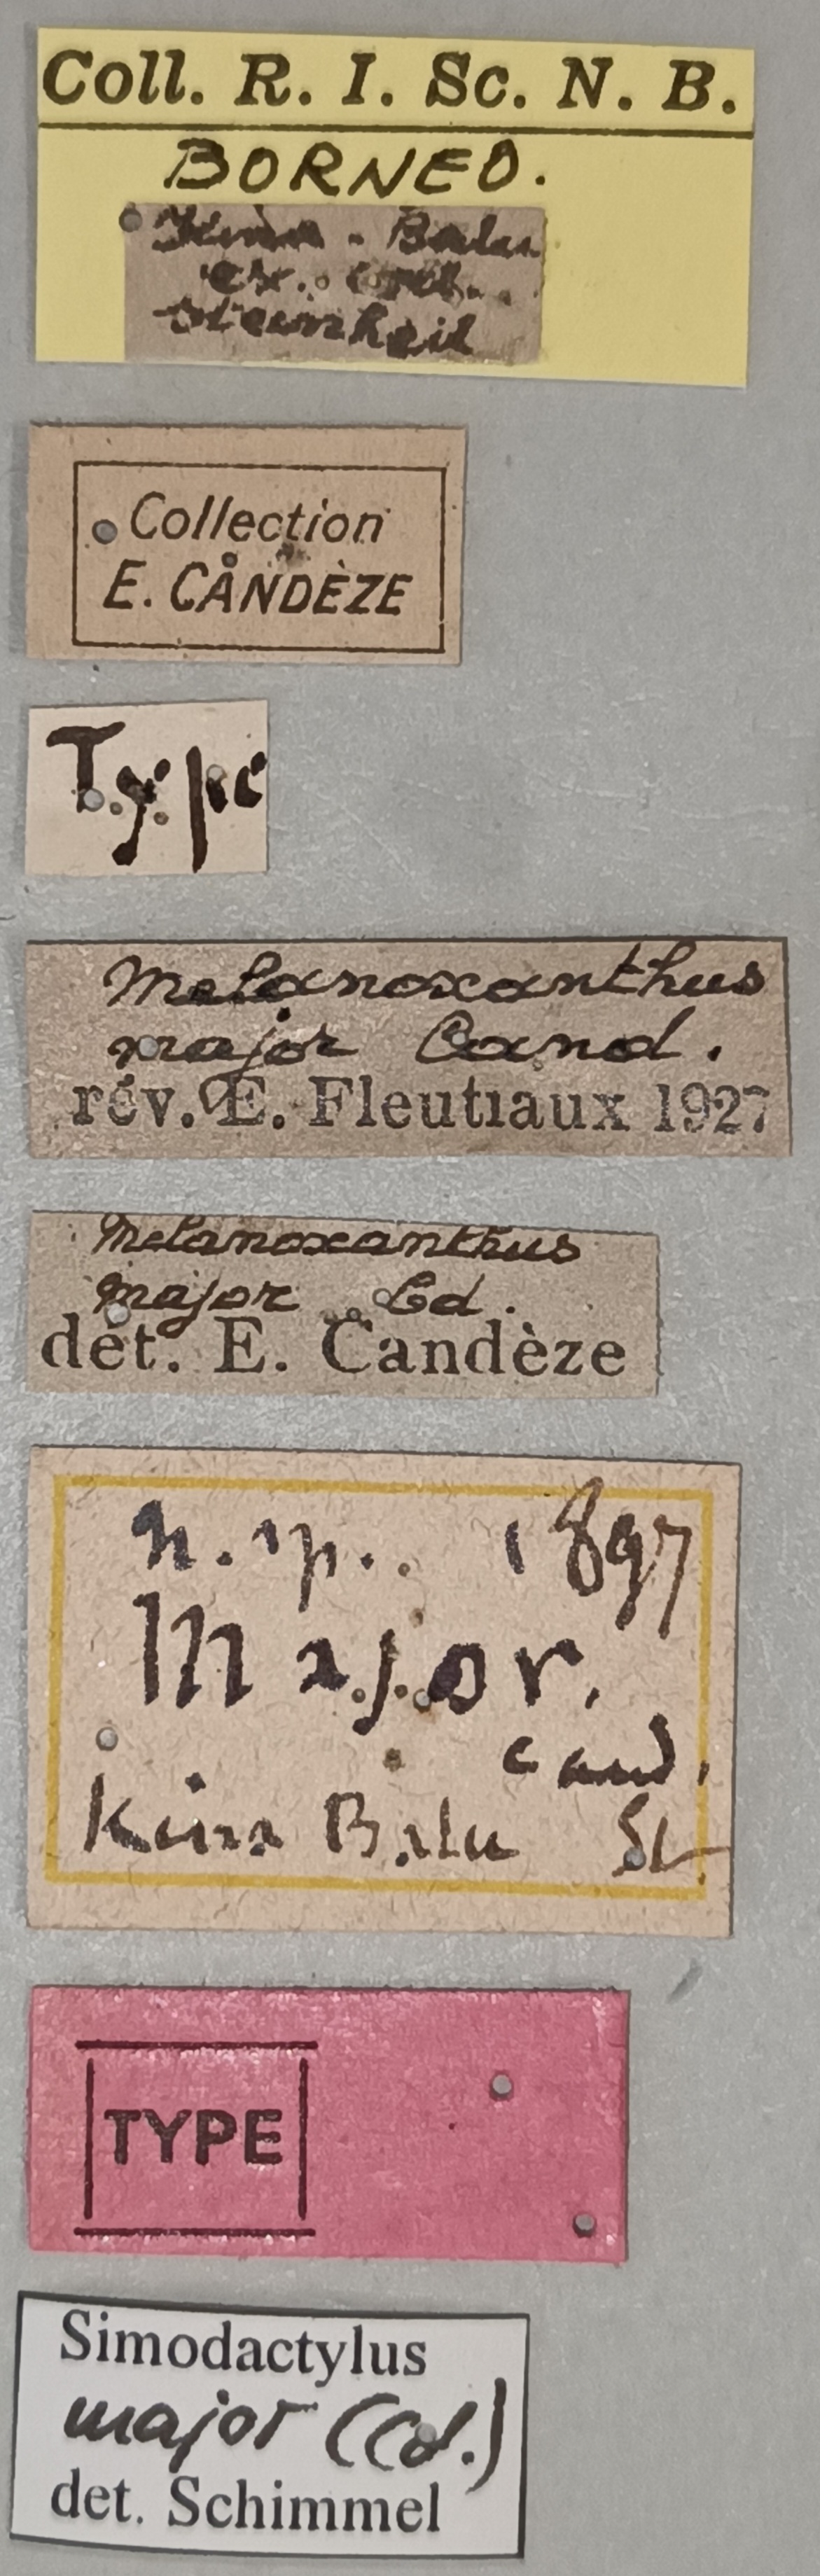 Coll. R. I. Sc. N. B.
BORNEO.
Kina - Balu
ex. coll.
Collection
E. CANDÈZE
Type
Melanoxanthus
major Cand.
rév. E. Fleutiaux 1927
Melanoxanthus
major Cd.
det. E. Candèze
n. sp. 1897
Major.
Cand.
Kina Balu
TYPE
Simodactylus
major (Cd.)
det. Schimmel